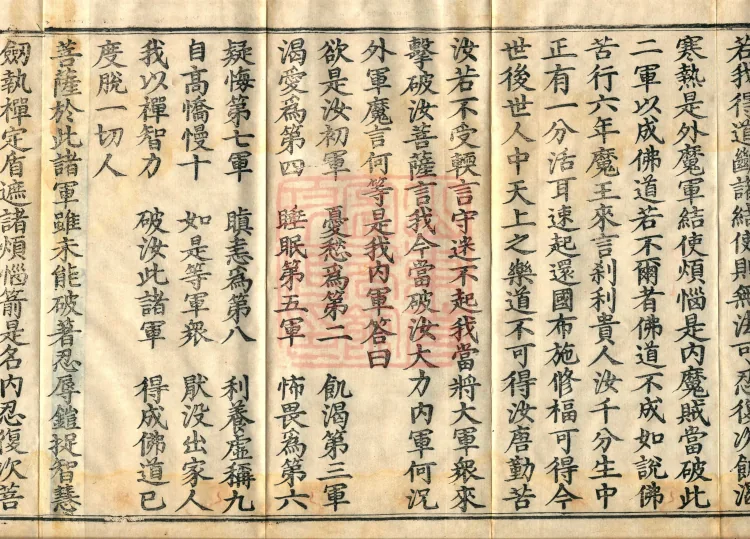 若我得道斷諸結使則無法可忍復次飢渴
寒熱是外魔軍結使煩惱是內魔賊當破此
二軍以成佛道若不爾者佛道不成如說佛
苦行六年魔王來言剎利貴人汝千分生中
正有一分活耳速起還國布施修福可得今
世後世人中天上之樂道不可得汝唐勤苦
汝若不受輭言守迷不起我當將大軍眾來
擊破汝菩薩言我今當破汝大力內軍何況
外軍魔言何等是我內軍答曰
欲是汝初軍　憂愁為第二　飢渴第三軍
渴愛為第四　睡眠第五軍　怖畏為第六
疑悔第七軍　瞋恚為第八　利養虛稱九
自高憍慢十　如是等軍眾　厭沒出家人
我以禪智力　破汝此諸軍　得成佛道已
度脫一切人
菩薩於此諸軍雖未能破著忍辱鎧捉智慧
劒執禪定盾遮諸煩惱箭是名內忍復次菩